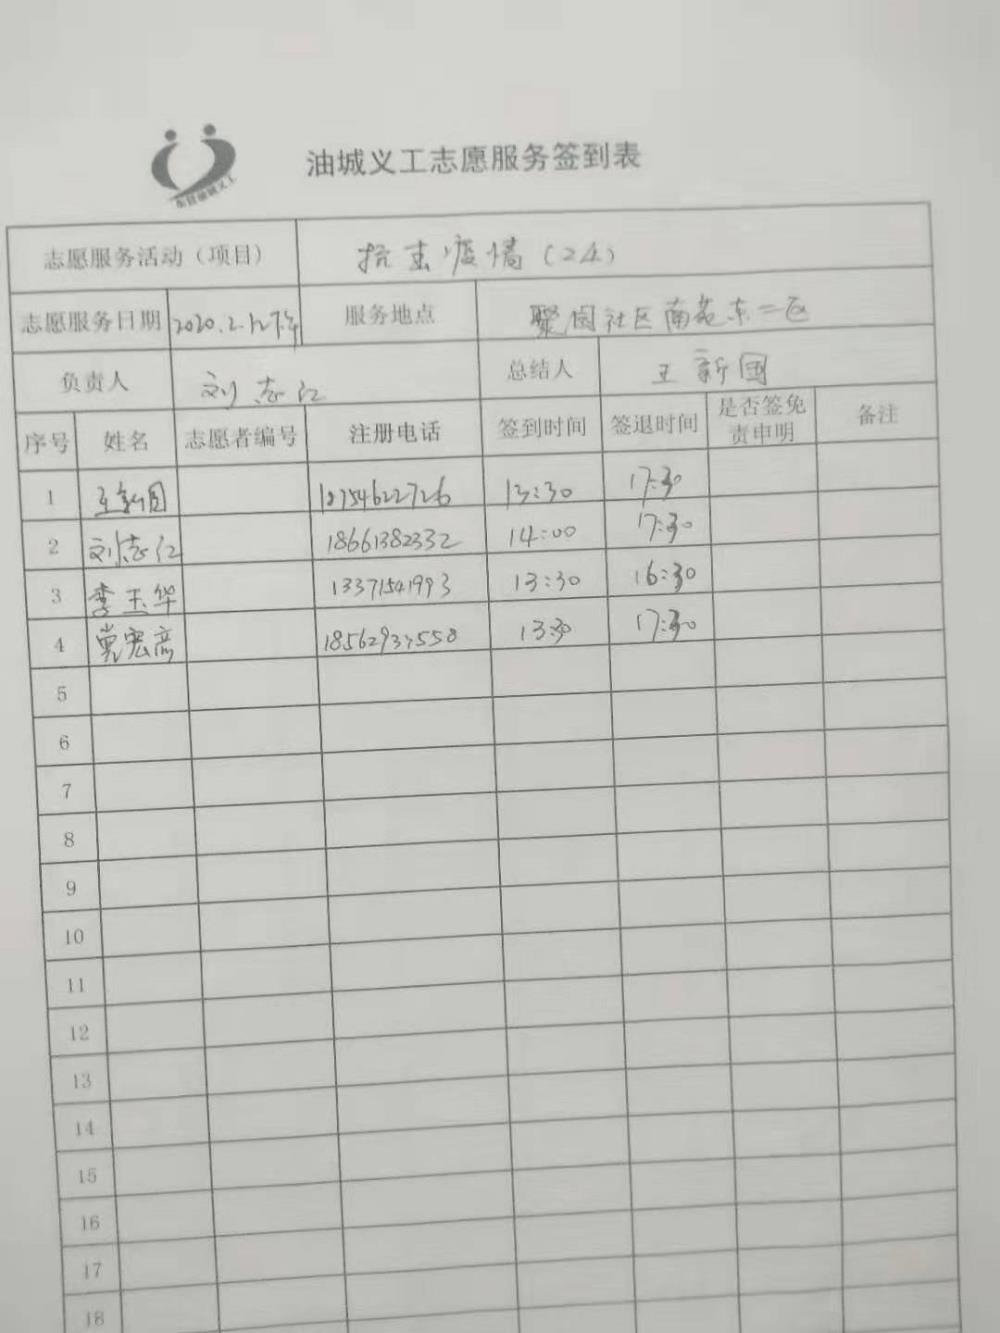 东营油城义工
油城义工志愿服务签到表
志愿服务活动（项目） 抗击疫情（24）
志愿服务日期 2020.2.12下午 服务地点 聚园社区南苑东二区
负责人 刘志江 总结人 王新国
序号 姓名 志愿者编号 注册电话 签到时间 签退时间 是否签免责申明 备注
1 王新国 18754622726 13:30 17:30
2 刘志江 18661382332 14:00 17:30
3 李玉华 13371541993 13:30 16:30
4 13:30 17:30
5
6
7
8
9
10
11
12
13
14
15
16
17
18